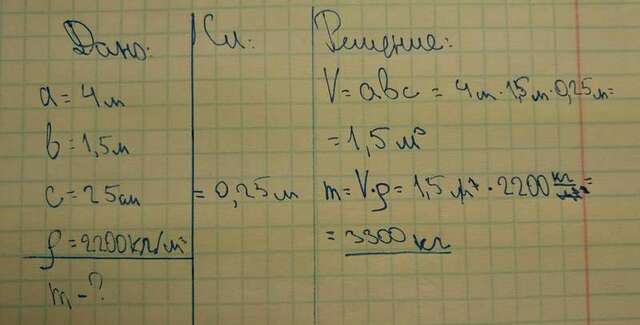 Дано:
a = 4 м
b = 1,5 м
c = 25 см
ρ = 2200 кг/м³
m - ?
Си:
= 0,25 м
Решение:
V = abc = 4 м · 1,5 м · 0,25 м =
= 1,5 м³
m = V · ρ = 1,5 м³ · 2200 кг/м³ =
= 3300 кг